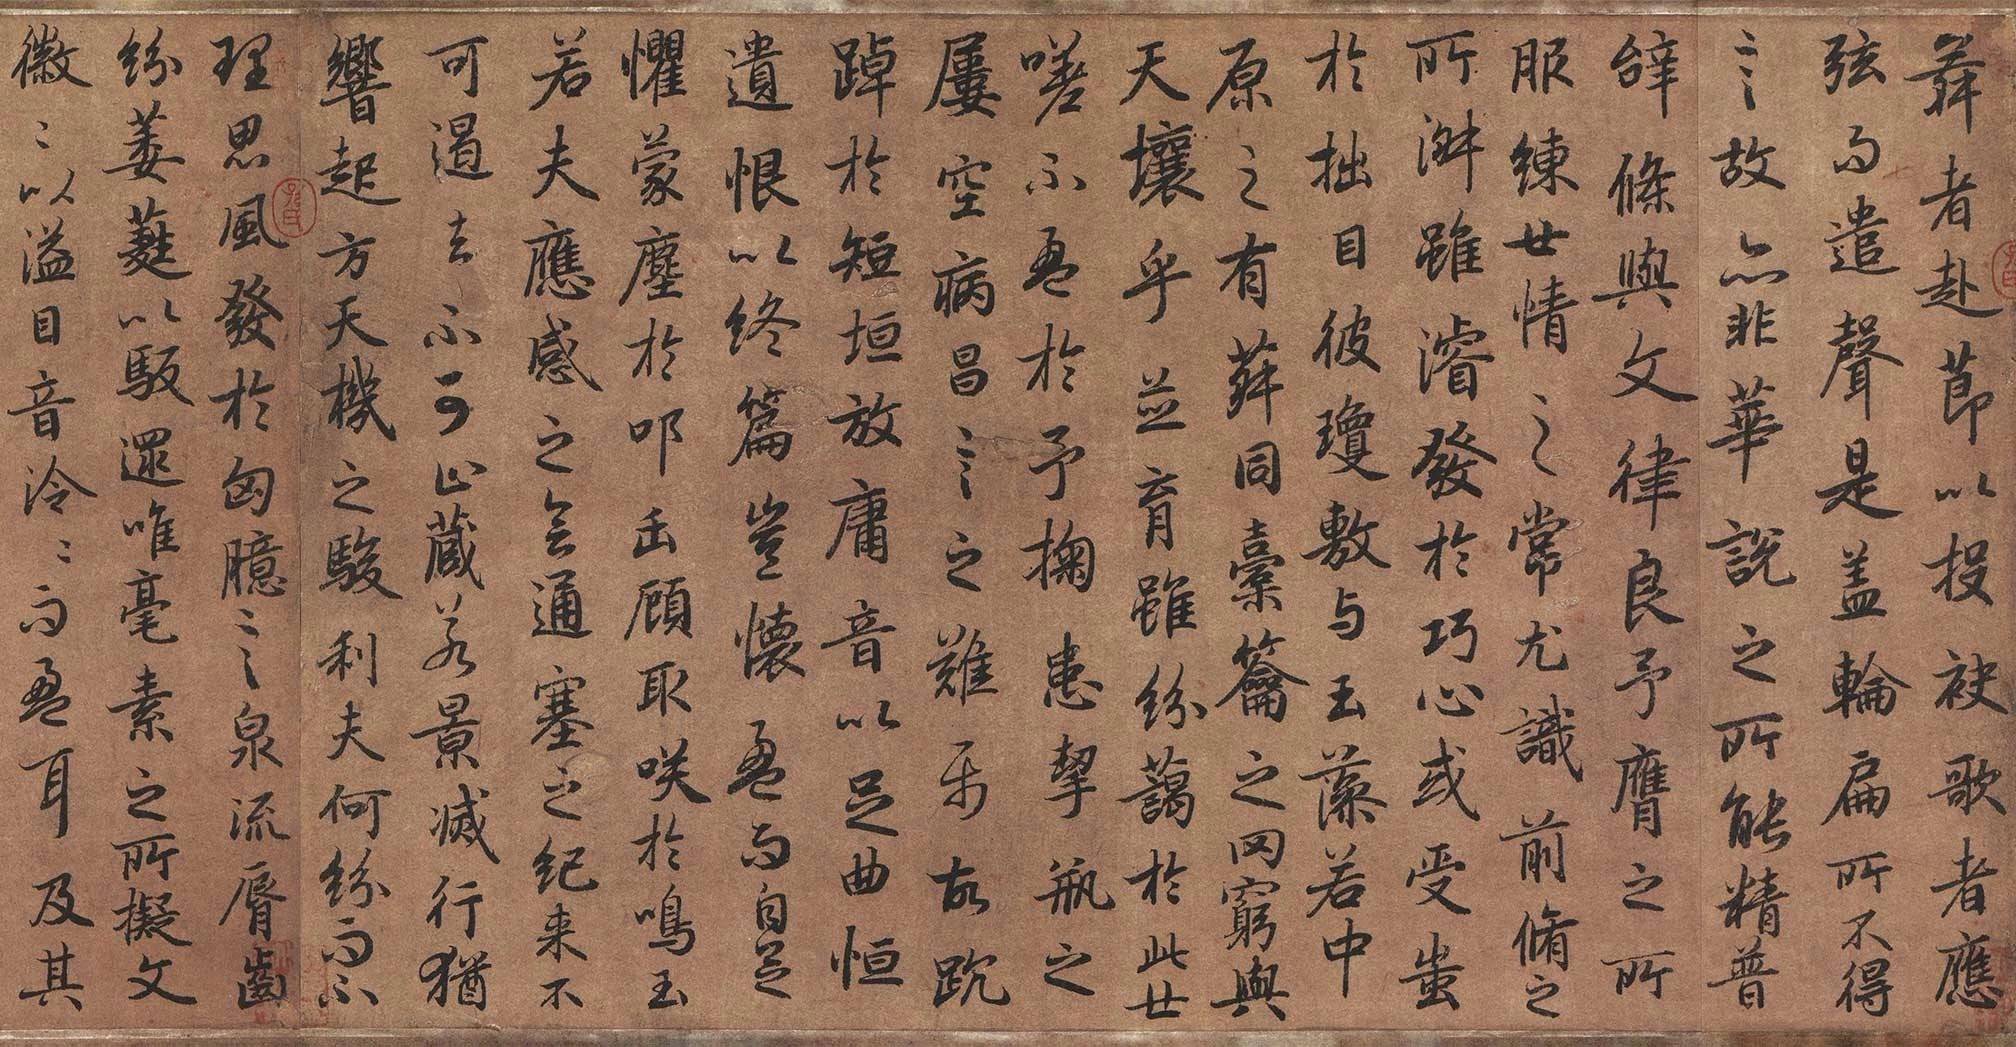 舞者赴節以投袂歌者應
弦而遣聲是盖輪扁所不得
言故亦非華說之所能精普
辞條與文律良予膺之所
服練世情之常尤識前脩之
所淑雖濬發於巧心或受蚩
於拙目彼瓊敷与玉藻若中
原之有菽同橐籥之罔窮與
天壤乎並育雖紛藹於此世
嗟不盈於予掬患挈瓶之
屢空病昌言之難属故踸
踔於短垣放庸音以足曲恒
遺恨以終篇豈懷盈而自足
懼蒙塵於叩缶顧取咲於鳴玉
若夫應感之會通塞之紀来不
可遏去不可止蔵若景滅行猶
響起方天機之駿利夫何紛而不
理思風發於匈臆言泉流脣齒
紛葳蕤以馺遝唯毫素之所擬文
徽〻以溢目音泠〻而盈耳及其